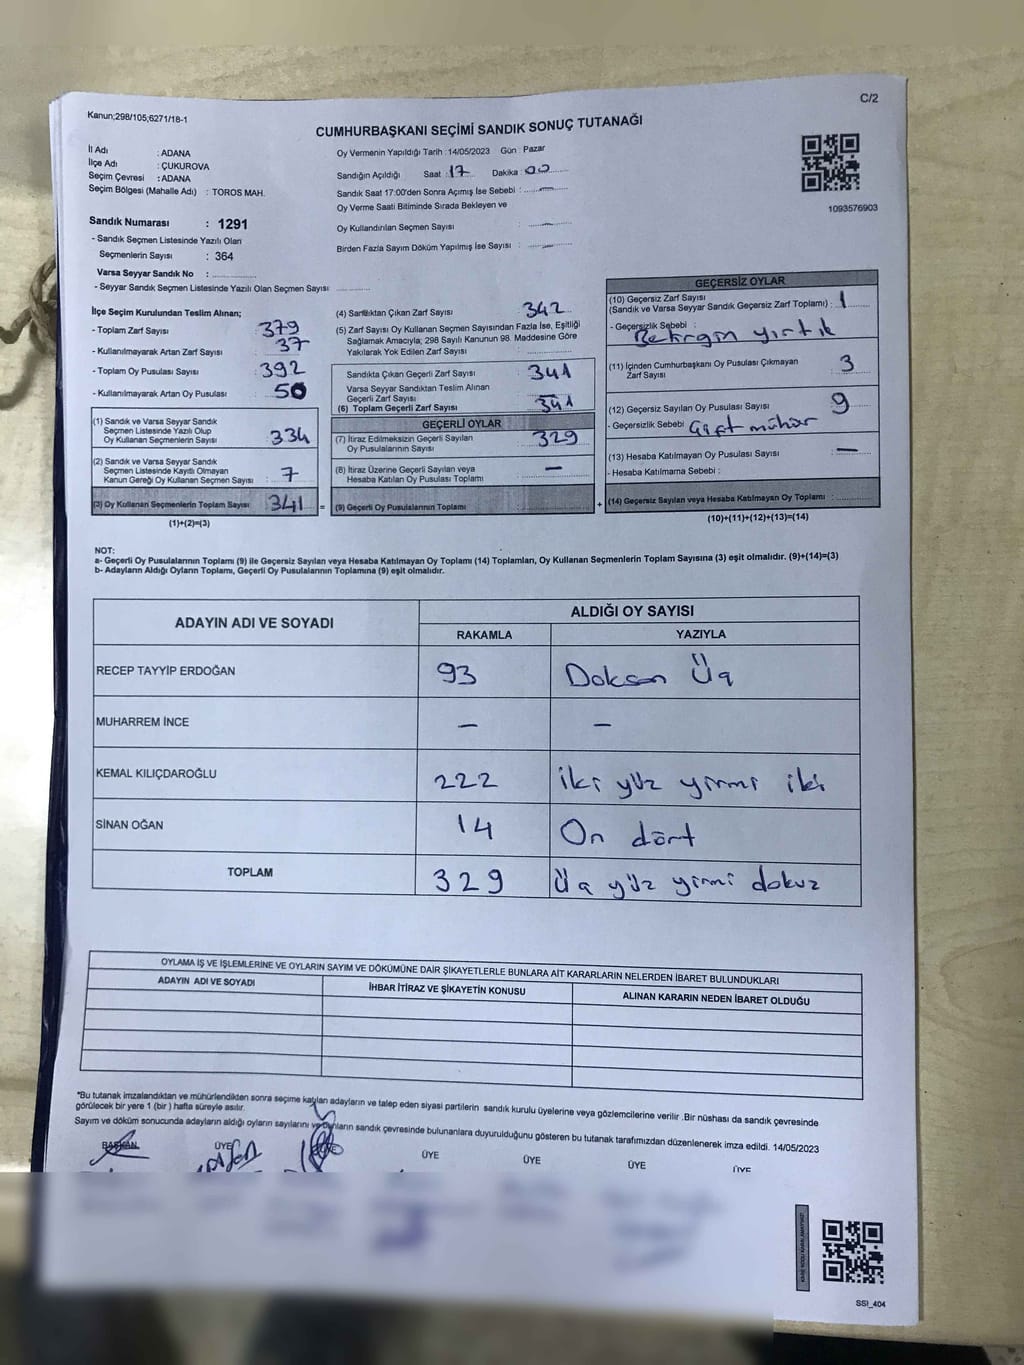 C/2
Kanun;298/105;6271/18-1
CUMHURBAŞKANI SEÇİMİ SANDIK SONUÇ TUTANAĞI
İl Adı : ADANA
İlçe Adı : ÇUKUROVA
Seçim Çevresi : ADANA
Seçim Bölgesi (Mahalle Adı) : TOROS MAH.
Sandık Numarası : 1291
- Sandık Seçmen Listesinde Yazılı Olan
Seçmenlerin Sayısı : 364
Varsa Seyyar Sandık No :
- Seyyar Sandık Seçmen Listesinde Yazılı Olan Seçmen Sayısı
Oy Vermenin Yapıldığı Tarih : 14/05/2023 Gün : Pazar
Sandığın Açıldığı Saat : 17 Dakika : 00
Sandık Saat 17:00'den Sonra Açımış İse Sebebi : —
Oy Verme Saati Bitiminde Sırada Bekleyen ve
Oy Kullandırılan Seçmen Sayısı : —
Birden Fazla Sayım Döküm Yapılmış İse Sayısı : —
1093576903
İlçe Seçim Kurulundan Teslim Alınan;
- Toplam Zarf Sayısı : 379
- Kullanılmayarak Artan Zarf Sayısı : 37
- Toplam Oy Pusulası Sayısı : 392
- Kullanılmayarak Artan Oy Pusulası : 50
(1) Sandık ve Varsa Seyyar Sandık
Seçmen Listesinde Yazılı Olup
Oy Kullanan Seçmenlerin Sayısı : 334
(2) Sandık ve Varsa Seyyar Sandık
Seçmen Listesinde Kayıtlı Olmayan
Kanun Gereği Oy Kullanan Seçmen Sayısı : 7
(3) Oy Kullanan Seçmenlerin Toplam Sayısı : 341
(1)+(2)=(3)
(4) Sandıktan Çıkan Zarf Sayısı : 342
(5) Zarf Sayısı Oy Kullanan Seçmen Sayısından Fazla İse, Eşitliği
Sağlamak Amacıyla; 298 Sayılı Kanunun 98. Maddesine Göre
Yakılarak Yok Edilen Zarf Sayısı :
Sandıkta Çıkan Geçerli Zarf Sayısı : 341
Varsa Seyyar Sandıktan Teslim Alınan
Geçerli Zarf Sayısı :
(6) Toplam Geçerli Zarf Sayısı : 341
GEÇERLİ OYLAR
(7) İtiraz Edilmeksizin Geçerli Sayılan
Oy Pusulalarının Sayısı : 329
(8) İtiraz Üzerine Geçerli Sayılan veya
Hesaba Katılan Oy Pusulası Toplamı : —
= (9) Geçerli Oy Pusulalarının Toplamı :
GEÇERSİZ OYLAR
(10) Geçersiz Zarf Sayısı
(Sandık ve Varsa Seyyar Sandık Geçersiz Zarf Toplamı) : 1
- Geçersizlik Sebebi : yırtık
(11) İçinden Cumhurbaşkanı Oy Pusulası Çıkmayan
Zarf Sayısı : 3
(12) Geçersiz Sayılan Oy Pusulası Sayısı : 9
- Geçersizlik Sebebi Çift mühür
(13) Hesaba Katılmayan Oy Pusulası Sayısı : —
- Hesaba Katılmama Sebebi :
+ (14) Geçersiz Sayılan veya Hesaba Katılmayan Oy Toplamı :
(10)+(11)+(12)+(13)=(14)
NOT:
a- Geçerli Oy Pusulalarının Toplamı (9) ile Geçersiz Sayılan veya Hesaba Katılmayan Oy Toplamı (14) Toplamları, Oy Kullanan Seçmenlerin Toplam Sayısına (3) eşit olmalıdır. (9)+(14)=(3)
b- Adayların Aldığı Oyların Toplamı, Geçerli Oy Pusulalarının Toplamına (9) eşit olmalıdır.
ADAYIN ADI VE SOYADI ALDIĞI OY SAYISI
RAKAMLA YAZIYLA
RECEP TAYYİP ERDOĞAN 93 Doksan Üç
MUHARREM İNCE — —
KEMAL KILIÇDAROĞLU 222 iki yüz yirmi iki
SİNAN OĞAN 14 On dört
TOPLAM 329 Üç yüz yirmi dokuz
OYLAMA İŞ VE İŞLEMLERİNE VE OYLARIN SAYIM VE DÖKÜMÜNE DAİR ŞİKAYETLERLE BUNLARA AİT KARARLARIN NELERDEN İBARET BULUNDUKLARI
ADAYIN ADI VE SOYADI İHBAR İTİRAZ VE ŞİKAYETİN KONUSU ALINAN KARARIN NEDEN İBARET OLDUĞU
*Bu tutanak imzalandıktan ve mühürlendikten sonra seçime katılan adayların ve talep eden siyasi partilerin sandık kurulu üyelerine veya gözlemcilerine verilir .Bir nüshası da sandık çevresinde
görülecek bir yere 1 (bir ) hafta süreyle asılır.
Sayım ve döküm sonucunda adayların aldığı oyların sayılarını ve bunların sandık çevresinde bulunanlara duyurulduğunu gösteren bu tutanak tarafımızdan düzenlenerek imza edildi. 14/05/2023
BAŞKAN ÜYE ÜYE ÜYE ÜYE ÜYE
SSI_404